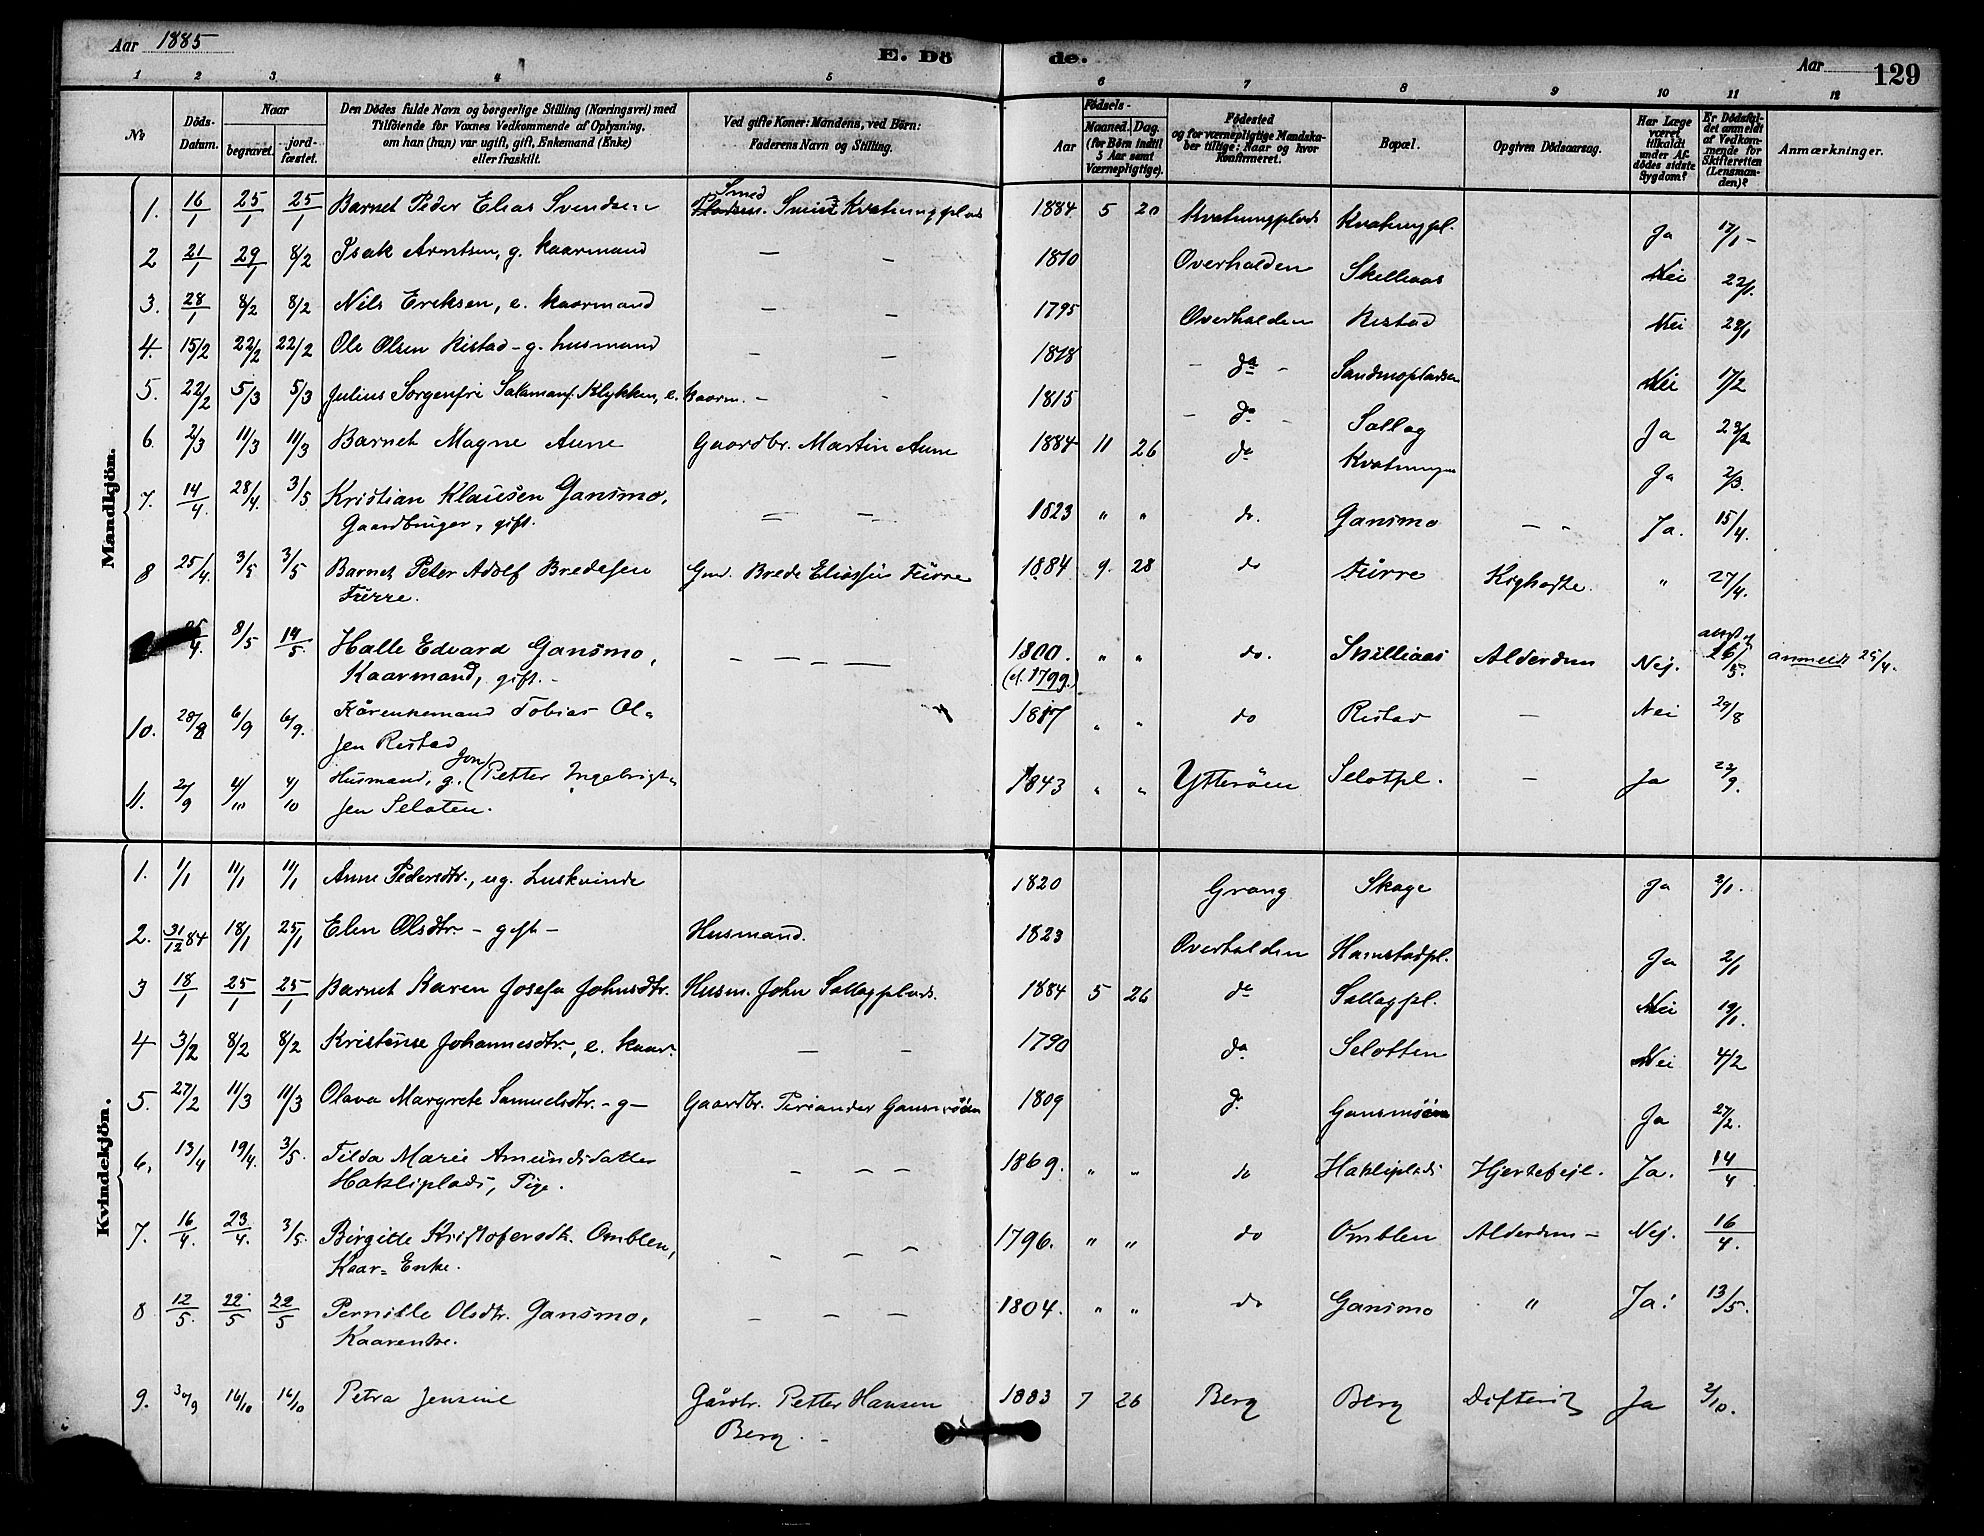 Aar 1885
E. Dö de.
Aar 129
1 2 3. 4 5 6 7 8 9 10 11 12
No
Döds-Datum.
Naar
begravet. jord-fæstet.
Den Dödes fulde Navn og borgerlige Stilling (Næringsvei) med
Tilföiende for Voxnes Vedkommende af Oplysning,
om han (hun) var ugift, gift, Enkemand (Enke)
eller fraskilt.
Ved gifte Koner: Mandens, ved Börn:
Faderens Navn og Stilling.
Födsels-
Aar Maaned. Dag.
(for Börn indtil
5 Aar samt
Værnepligtige).
Födested
og for værnepligtige Mandska-
ber tillige: Naar og hvor
Konfirmeret.
Bopæl.
Opgiven Dödsaarsag.
Har Læge
været
tilkaldt
under Af-
dödes sidste
Sygdom?
Er Dödsfal-
det anmeldt
af Vedkom-
mende for
Skifteretten
(Lensman-
den)?
Anmærkninger.
Mandkjön.
1. 16/1 25/1 25/1 Barnet Peder Elias Svendsen Smed Kvatningplads 1884 5 20 Kvatningplads Kvatningpl. Ja 17/1 -
2 21/1 29/1 8/2 Isak Arntsen, g. kaarmand — - 1810 Overhalden Skilliaas Nei 22/1.
3. 28/1 8/2 8/2 Nils Eriksen, e. kaarmand — - 1795 Overhalden Ristad Nei 28/1
4. 15/2 22/2 22/2 Ole Olsen Ristad - g. husmand - - 1818 - do - Sandmopladsen Nei 17/2
5. 22/2 5/3 5/3 Julius Sorgenfri Salamons. Klykken, e. kaarm. - - 1815 - do - Sollag Ja 23/2
6. 2/3 11/3 11/3 Barnet Magne Aune Gaardbr. Martin Aune 1884 11 26 do Kvatningen Ja 2/3.
7. 14/4. 28/4. 3/5 Kristian Klausen Gansmo,
Gaardbruger, gift. — — 1823 " " do. Gansmo — - Ja. 15/4.
8 25/4. 3/5 3/5 Barnet Peter Adolf Bredesen
Furre. Gmd. Brede Eliassen Furre 1884 9. 28 do Furre Kighoste. " 27/4.
25/4. 8/5 14/5. Halle Edvard Gansmo,
Kaarmand, gift. - — — — — 1800. (el. 1799.) " " do. Skilliaas Alderdom Nej. 26/5. anmeldt 25/4.
10. 28/8 6/9 6/9. Kårenkemand Tobias Ol=
sen Ristad 1817 " " do Ristad — Nei 29/8
11. 2/9 4/10 4/10 Husmand, g. (Jon) Petter Ingebrigt=
sen Seloten. 1843 " " Ytterøen Selotpl. — Ja 22/9.
Kvindekjön.
1. 1/1 11/1 11/1 Anne Pedersdtr., ug. Luskvinde 1820 Grong Skage Ja 2/1.
2. 31/12 84 18/1 25/1 Elen Olsdtr. - gift - Husmand. 1823 Overhalden Hamstadpl. Ja 2/1
3 18/1 25/1 25/1 Barnet Karen Josefa Johnsdtr. Husm. John Sollagplads. 1884 5 26 do Sollagpl. Nei 19/1.
4 3/2 8/2 8/2 Kristense Johannesdtr., e. kaar. — - 1790 do Selotten Nei 4/2
5. 27/2 11/3 11/3 Olava Margrete Samuelsdtr. - g - Gaardbr. Periander Gansmoen 1809 do. Gansmoen Ja 27/2.
6. 13/4 19/4. 3/5. Tilda Marie Amundsdatter
Hakliplads, Pige. — — — 1869. " " do Hakliplads Hjertefejl. Ja. 14/4
7. 16/4. 23/4. 3/5. Birgitte Kristofersdtr. Omblen,
Kaar= Enke. — — — 1796. " " do Omblen Alderdom - Nej. 16/4.
8 12/5. 22/5 22/5 Pernille Olsdtr. Gansmo,
Kaarenke. — — — 1804. " " do Gansmo " Ja. 13/5.
9. 30/9 16/10 16/10 Petra Jensine Gårdbr. Petter Hansen
Berg. - 1883 7 26 Berg Berg Difterit Ja 2/10.